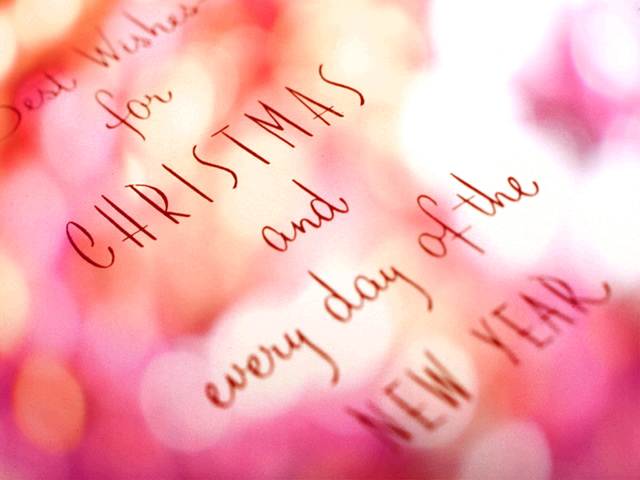 Best Wishes
for
CHRISTMAS
and
every day of the
NEW YEAR